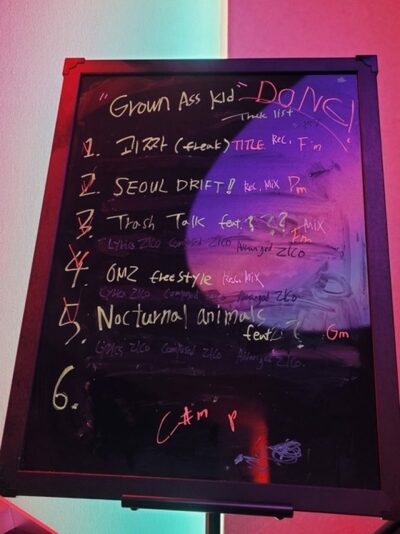 "Grown Ass Kid" DONE!
Track list
1. 괴짜 (freak) TITLE Rec, Fm
2. SEOUL DRIFT! Rec, Mix Dm
3. Trash Talk feat. ? ? ? Mix
Lyrics ZICO Composed ZICO Arranged ZICO Fm
4. OMZ freestyle Rec. Mix
Lyrics ZICO Composed Arranged ZICO
5. Nocturnal animals
feat. ? Gm
Lyrics ZICO Composed ZICO Arranged ZICO.
6.
C#m P